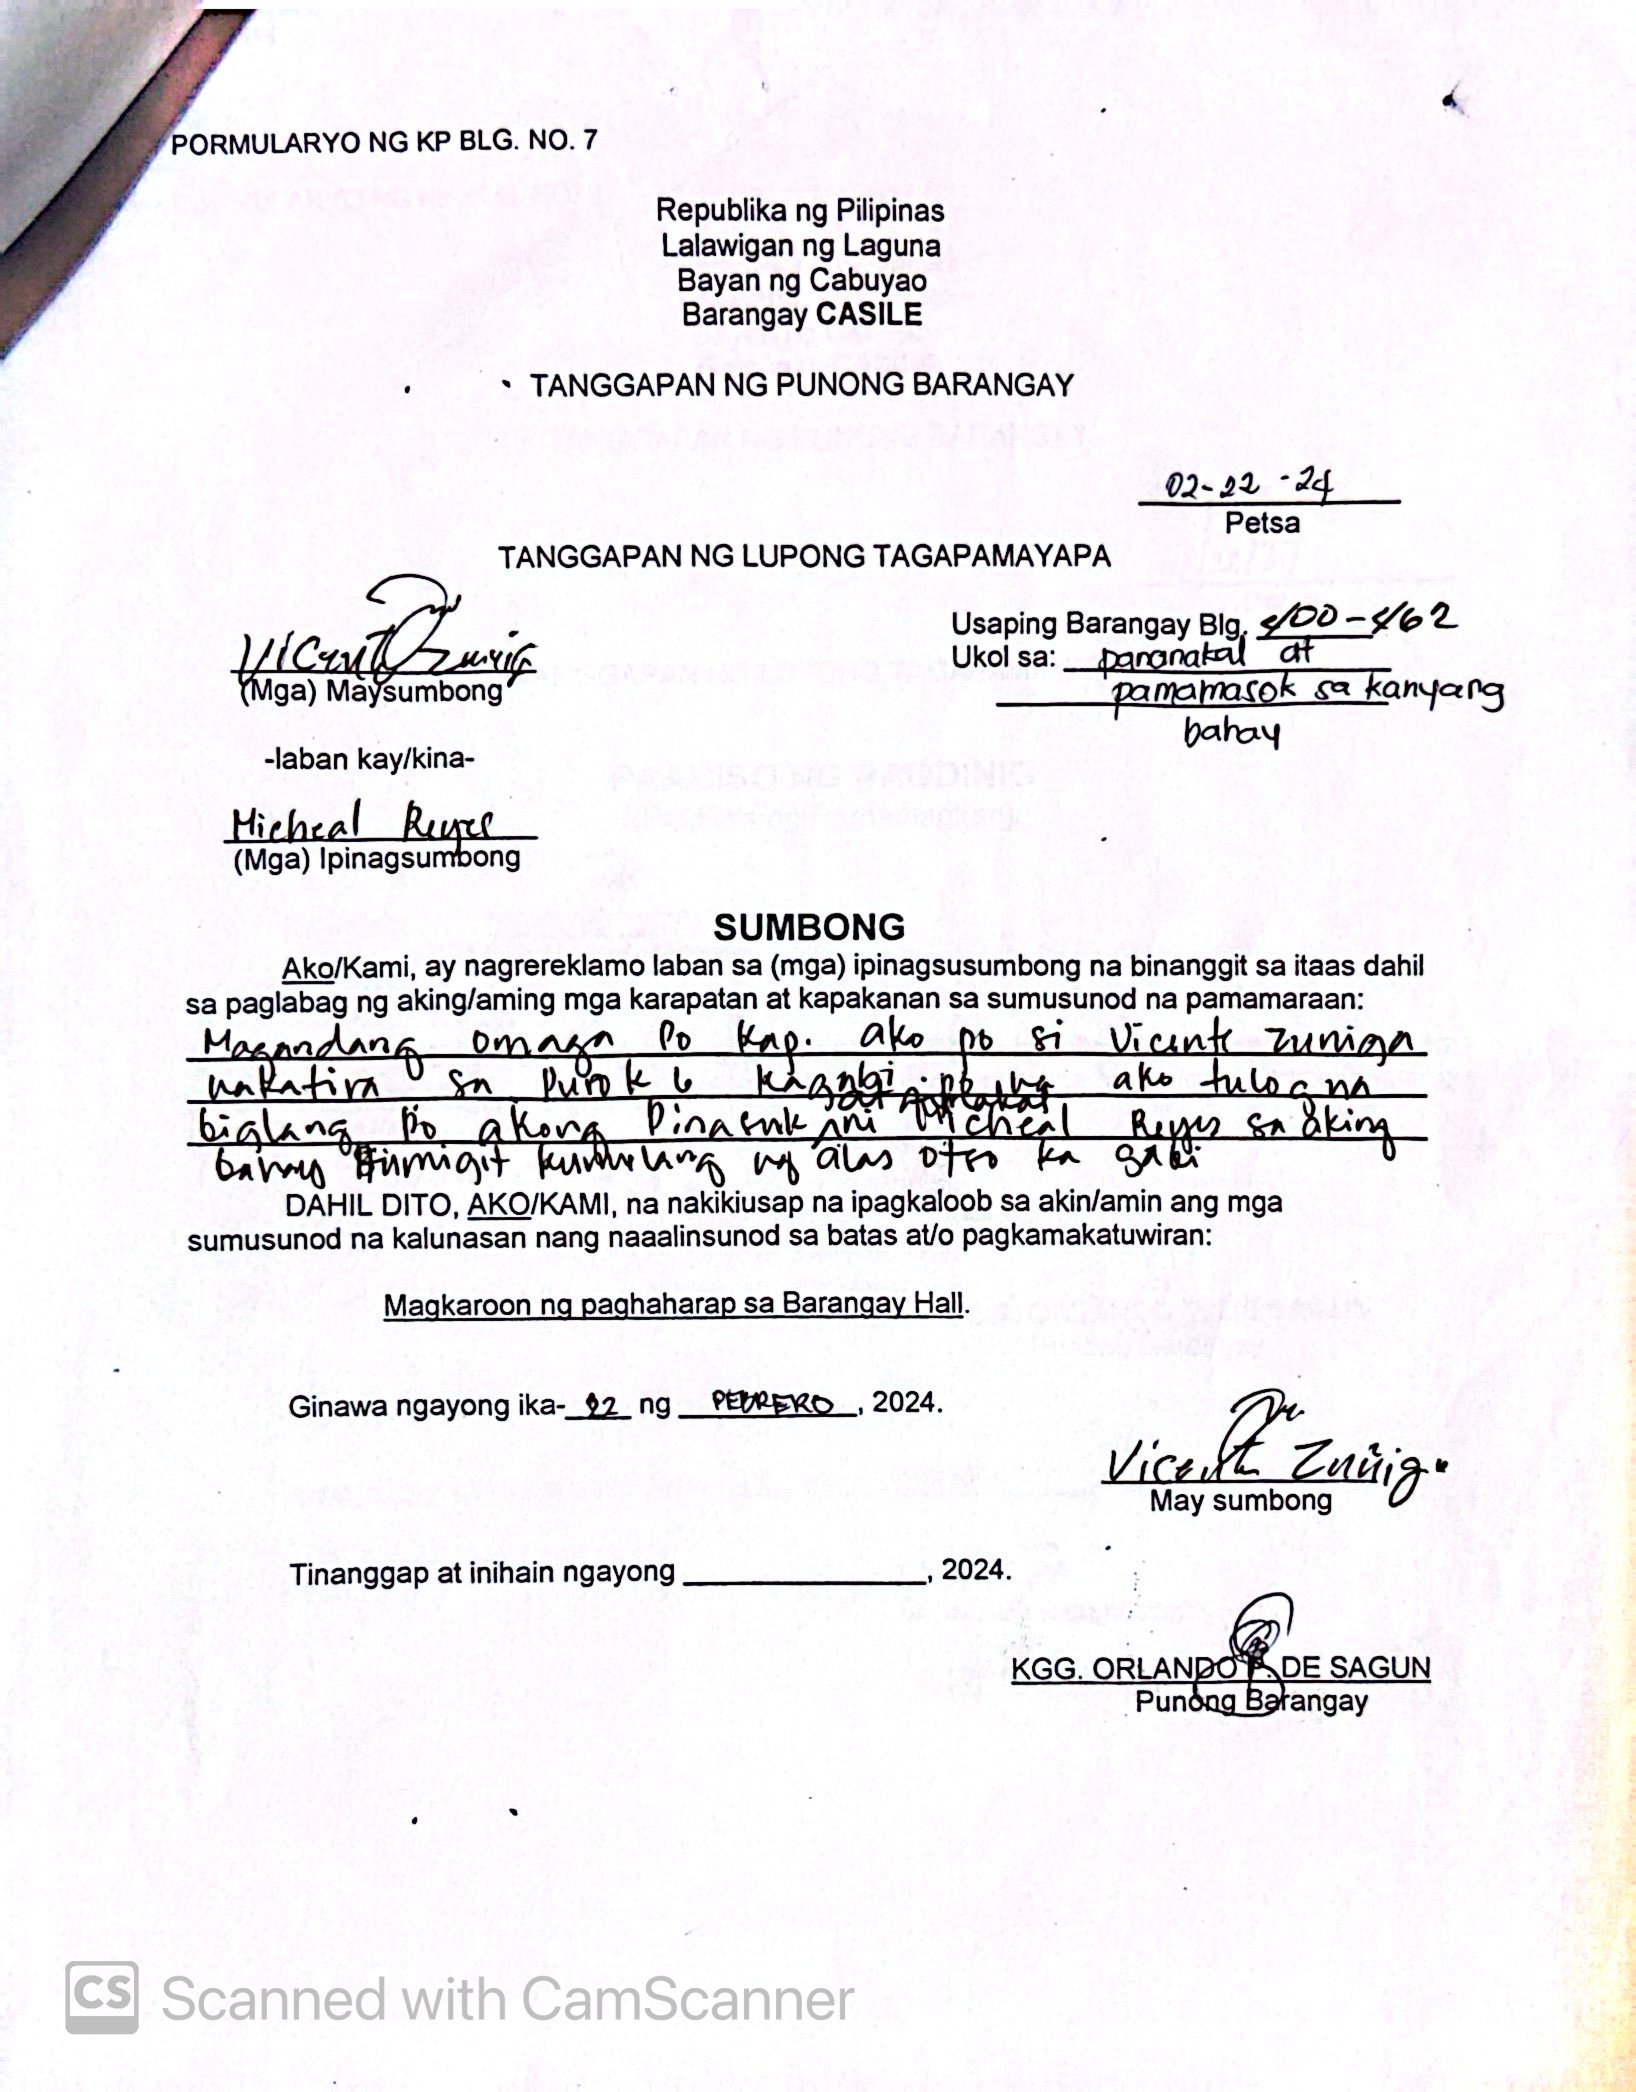 PORMULARYO NG KP BLG. NO. 7
Republika ng Pilipinas
Lalawigan ng Laguna
Bayan ng Cabuyao
Barangay CASILE
TANGGAPAN NG PUNONG BARANGAY
02-22-24
Petsa
TANGGAPAN NG LUPONG TAGAPAMAYAPA
Vicente Zuniga
(Mga) Maysumbong
Usaping Barangay Blg. 400-462
Ukol sa: pananakal at
pamamasok sa kanyang
bahay
-laban kay/kina-
Micheal Reyes
(Mga) Ipinagsumbong
SUMBONG
Ako/Kami, ay nagrereklamo laban sa (mga) ipinagsusumbong na binanggit sa itaas dahil
sa paglabag ng aking/aming mga karapatan at kapakanan sa sumusunod na pamamaraan:
Magandang omaga Po Kap. ako po si Vicente Zuniga
nakatira sa Purok 6 kagabi po ako tulog na
at
biglang Po akong Pinasuk ni Micheal Reyes sa aking
bahay humigit kumulang ng alas otso ka gabi
DAHIL DITO, AKO/KAMI, na nakikiusap na ipagkaloob sa akin/amin ang mga
sumusunod na kalunasan nang naaalinsunod sa batas at/o pagkamakatuwiran:
Magkaroon ng paghaharap sa Barangay Hall.
Ginawa ngayong ika- 22 ng PEBRERO, 2024.
Vicente Zuñiga
May sumbong
Tinanggap at inihain ngayong ______________, 2024.
KGG. ORLANDO P. DE SAGUN
Punong Barangay
CS Scanned with CamScanner